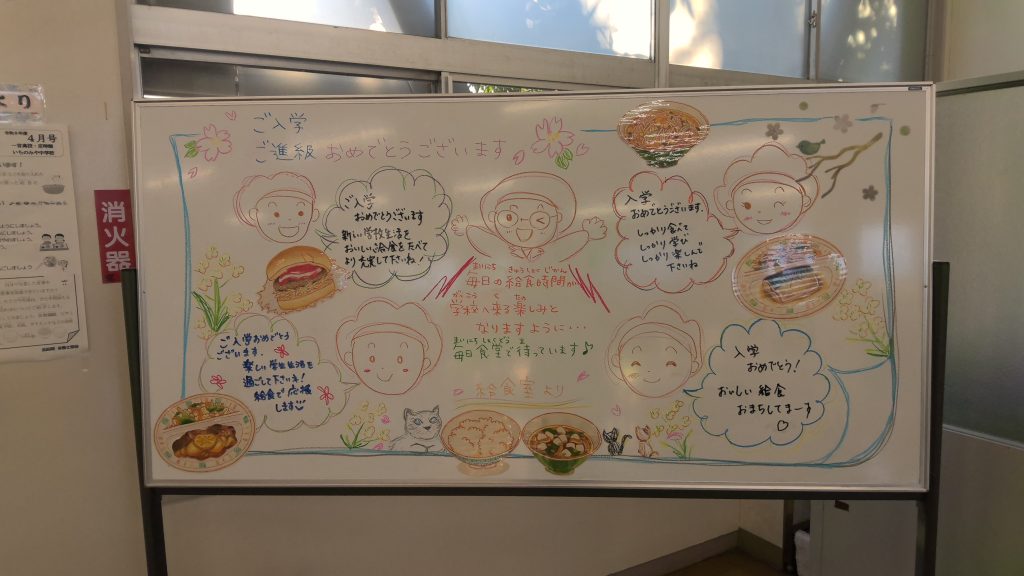 ご入学
ご進級 おめでとうございます
ご入学
おめでとうございます
新しい学校生活を
おいしい給食を たべて
より充実して下さいね!
入学
おめでとうございます。
しっかり食べて
しっかり学び
しっかり楽しんで
下さいね
まいにち きゅうしょく じかん
毎日の給食時間が
がっこう く たの
学校へ来る楽しみと
なりますように・・・
まいにちしょくどう ま
毎日食堂で待っています♪
給食室より
ご入学おめでとう
ございます。
楽しい学生生活を
過ごして下さいネ!
給食で応援
します
入学
おめでとう!
おいしい給食
おまちしてまーす
♡
消火器
より
4月号